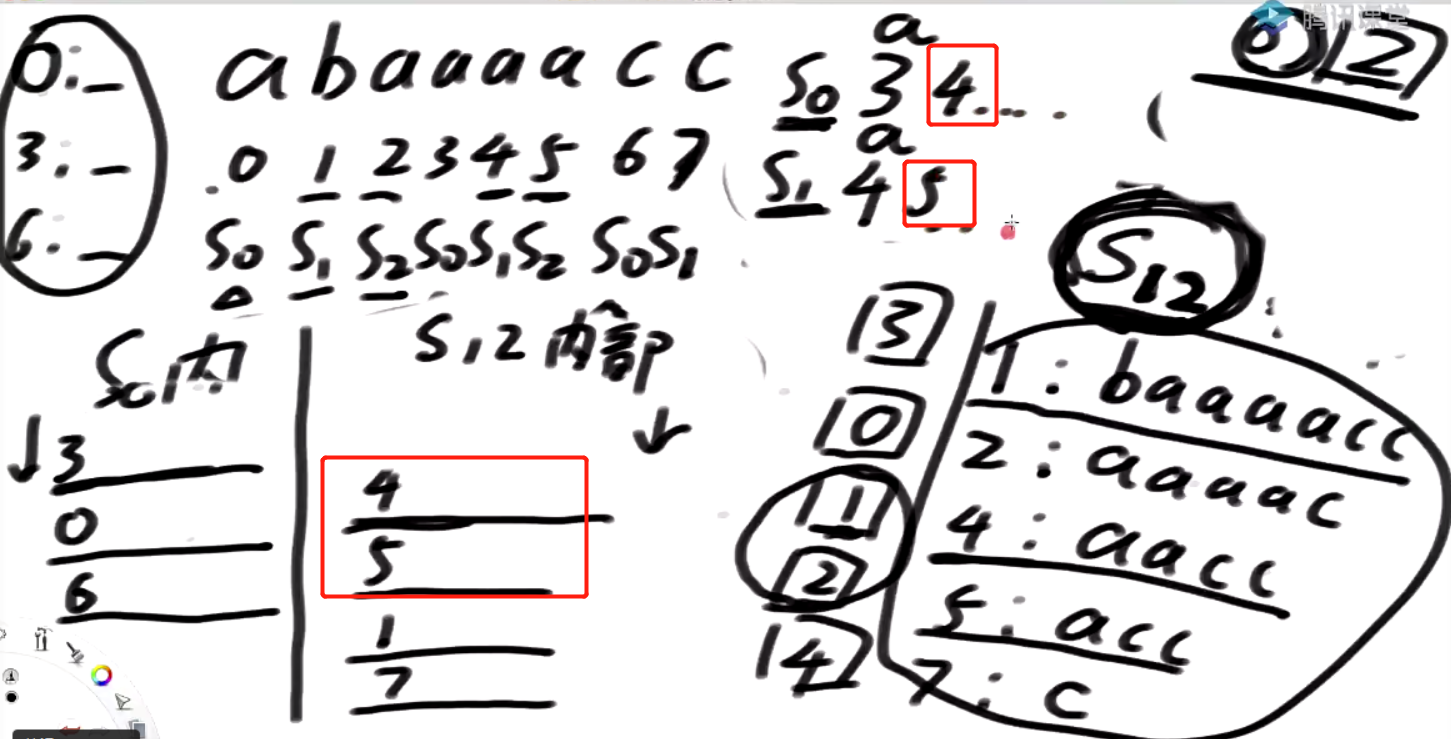 腾讯课堂
0: _
3. _
6. _
abaaaacc
0 1 2 3 4 5 6 7
S0 S1 S2 S0 S1 S2 S0 S1
a
S0 3 4....
a
S1 4 5
0 2
S12
S0内
3
0
6
S12内部
4
5
1
7
3
0
1
2
4
1: baaaacc
2: aaaac
4: aacc
5: acc
7: c